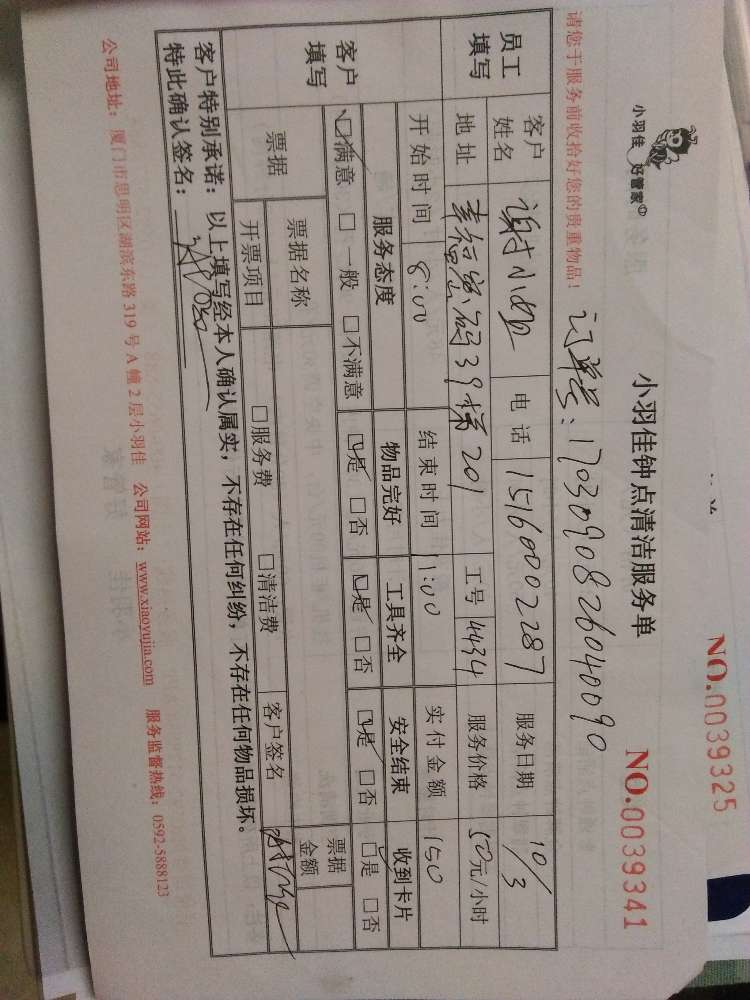 NO.0039325
小羽佳 好管家
小羽佳钟点清洁服务单
NO.0039341
请您于服务前收拾好您的贵重物品！
订单号：1703090826040090
员工填写 客户姓名 谢小姐 电话 15160002287 服务日期 10/3
地址 幸福密码39梯201 工号 4434 服务价格 50元/小时
客户填写 开始时间 8:00 结束时间 11:00 实付金额 150
服务态度 物品完好 工具齐全 安全结束 收到卡片
☑满意 □一般 □不满意 ☑是 □否 ☑是 □否 ☑是 □否 □是 □否
票据 票据名称 票据金额
开票项目 □服务费 □清洁费 客户签名
客户特别承诺：以上填写经本人确认属实，不存在任何纠纷，不存在任何物品损坏。
特此确认签名：
公司地址：厦门市思明区湖滨东路319号A幢2层小羽佳 公司网站：www.xiaoyujia.com 服务监督热线：0592-5888123